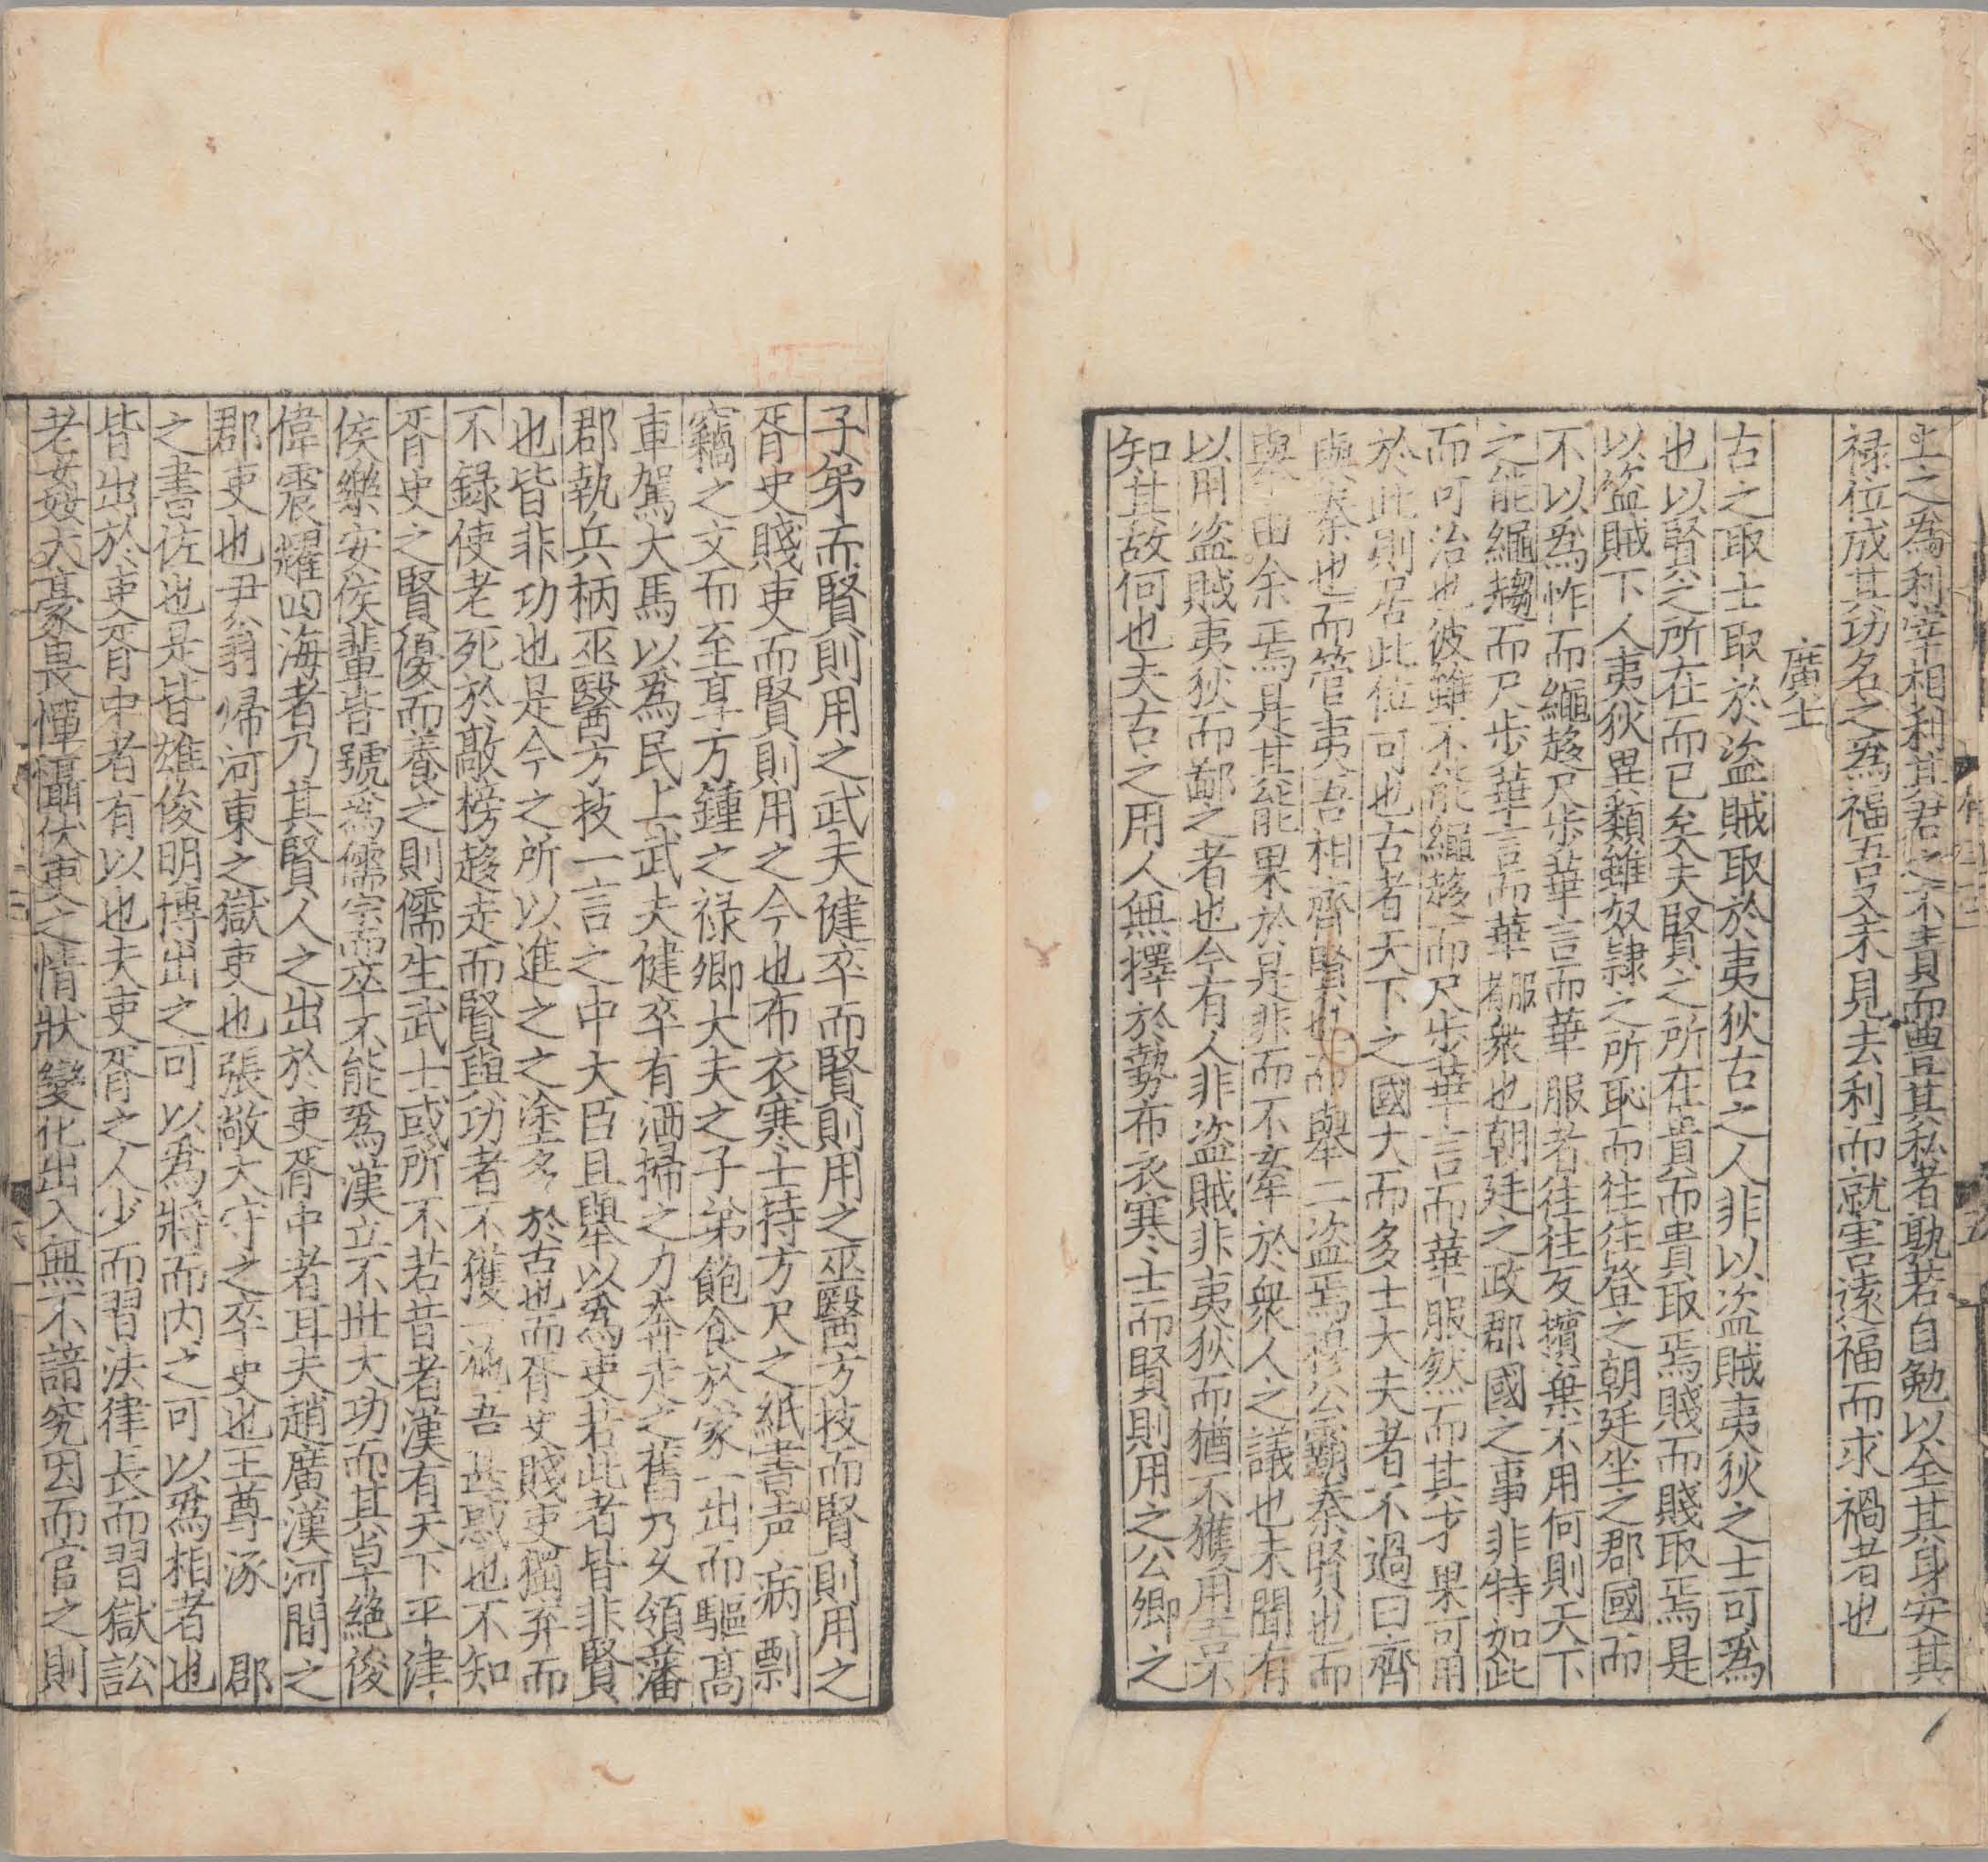 上之為利宰相利其君之不責而豊其私者孰若自勉以全其身安其
禄位成其功名之為福吾又未見去利而就害遠福而求禍者也
廣士
古之取士取於盗賊取於夷狄古之人非以盗賊夷狄之士可為
也以賢之所在而已矣夫賢之所在貴而貴取焉賤而賤取焉是
以盗賊下人夷狄異類雖奴隷之所恥而往往登之朝廷坐之郡國而
不以為怍而繩趍尺步華言而華服者往往反擯棄不用何則天下
之能繩趨而尺步華言而華服者衆也朝廷之政郡國之事非特如此
而可治也彼雖不能繩趍而尺步華言而華服然而其才果可用
於此則居此位可也古者天下之國大而多士大夫者不過曰齊
與秦也而管夷吾相齊賢也而舉二盗焉穆公霸秦賢也而
舉由余焉是其能果於是非而不牽於衆人之議也未聞有
以用盗賊夷狄而鄙之者也今有人非盗賊非夷狄而猶不獲用吾不
知其故何也夫古之用人無擇於勢布衣寒士而賢則用之公卿之
子弟而賢則用之武夫健卒而賢則用之巫醫方技而賢則用之
胥史賤吏而賢則用之今也布衣寒士持方尺之紙書声病剽
竊之文而至享万鍾之禄卿大夫之子弟飽食於家一出而驅髙
車駕大馬以為民上武夫健卒有洒掃之力奔走之舊乃乆領藩
郡執兵柄巫醫方技一言之中大臣且舉以為吏若此者皆非賢
也皆非功也是今之所以進之之塗多於古也而胥史賤吏獨弃而
不録使老死於敲榜趍走而賢與功者不獲一施吾甚惑也不知
胥吏之賢優而養之則儒生武士或所不若昔者漢有天下平津
侯樂安侯輩皆號為儒宗而卒不能為漢立不世大功而其卓絶俊
偉震耀四海者乃其賢人之出於吏胥中者耳夫趙廣漢河間之
郡吏也尹翁歸河東之獄吏也張敞大守之卒史也王尊涿 郡
之書佐也是皆雄俊明博出之可以為將而内之可以為相者也
皆出於吏胥中者有以也夫吏胥之人少而習法律長而習獄訟
老姦大豪畏憚懾伏吏之情狀變化出入無不諳究因而官之則